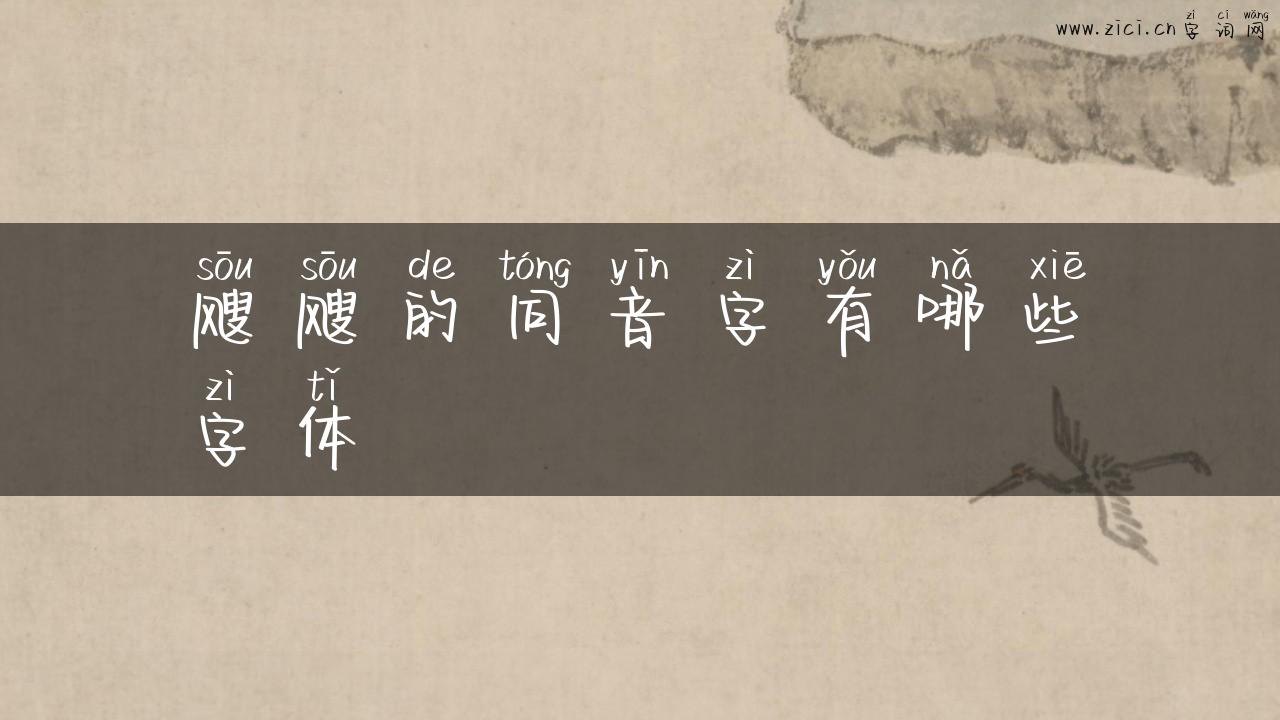 zì cí wǎng
www.zici.cn 字词网
sōu sōu de tóng yīn zì yǒu nǎ xiē
飕飕的同音字有哪些
zì tǐ
字体